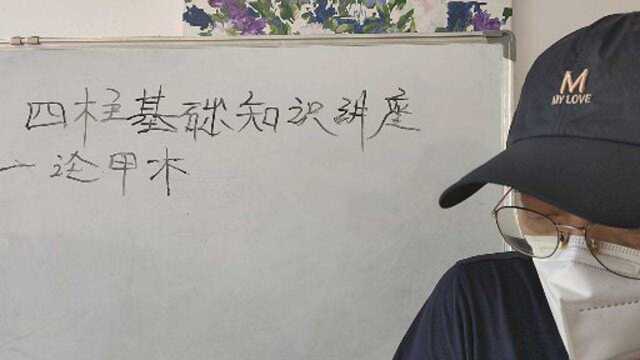 四柱基础知识讲座
一论甲木
M
MY LOVE